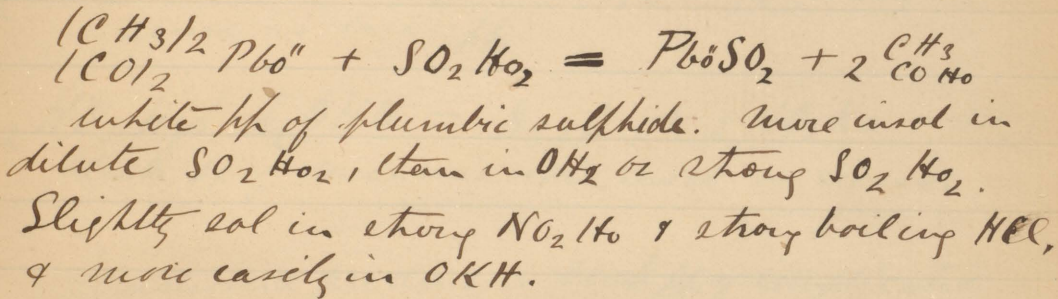 (CH3)2
(CO)2 Pbö" + SO2Ho2 = PböSO2 + 2 CH3
COHo
white pp of plumbic sulphide. More insol in
dilute SO2Ho2, than in OH2 or strong SO2Ho2.
Slightly sol in strong NO2Ho & strong boiling HCl,
& more easily in OKH.